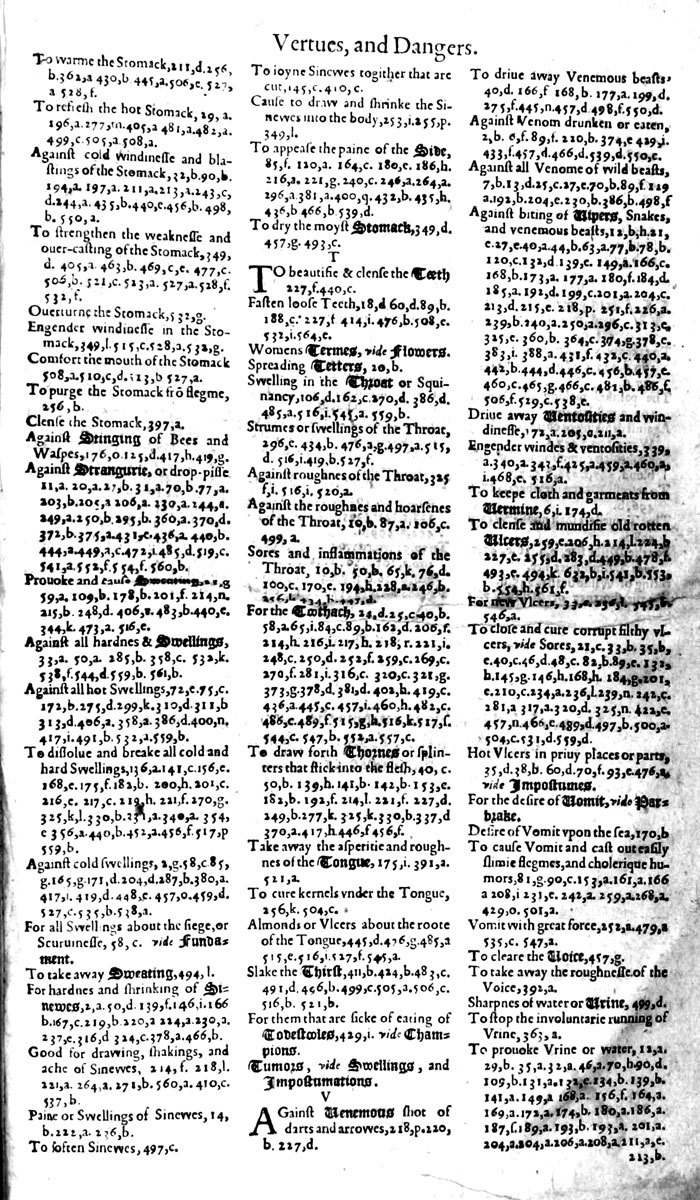 Vertues, and Dangers.
To warme the Stomack, 211,d.256,
b.362,a 430,b 445,a.506,c. 527,
a 528,f.
To refresh the hot Stomack, 29, a.
196,a.277,m.405,a 481,a.482,a.
499,c.505,a.508,a.
Against cold windinesse and bla-
stings of the Stomack, 32,b.90,b.
194,a. 197,a.211,a.213,a.243,c,
d.244,a. 435,b.440,e.456,b. 498,
b. 550,a.
To strengthen the weaknesse and
ouer-casting of the Stomack,349,
d. 405,a. 463,b. 469,c,e. 477,c.
506,b. 521,c. 523,a. 527,a.528,f.
532,f.
Ouerturne the Stomack,532,g.
Engender windinesse in the Sto-
mack,349,l.515,c.528,a.532,g.
Comfort the mouth of the Stomack
508,a.510,c,d.513,b 527,a.
To purge the Stomack frō flegme,
256,b.
Clense the Stomack,397,a.
Against Stinging of Bees and
Waspes,176,o.125,d.417,h.419,g.
Against Strangurie, or drop-pisse
11,a. 20,a.27,b. 31,a.70,b.77,a.
203,b.205,a 206,a. 230,a. 244,a.
249,a.250,b.295,b. 360,a.370,d.
372,b.375,a.431,c.436,a.440,b.
444,a.449,a,c.472,i.485,d.519,c.
541,a.552,f.554,f. 560,b.
Prouoke and cause Sweating,
59,a. 109,b.178,b. 201,f. 214,n.
215,b. 248,d. 406,a. 483,b.440,e.
344,k. 473,a. 516,e.
Against all hardnes & Swellings,
33,a. 50,a. 285,b. 358,c. 532,k.
538,f.544,d.559,b. 561,b.
Against all hot Swellings,72,e.75,c.
172,b.275,d.299,k.310,d.311,b
313,d.406,a. 358,a. 386,d.400,n.
417,i.491,b.532,a.559,b.
To dissolue and breake all cold and
hard Swellings,136,a.141,c.156,e.
168,e.175,f.182,b. 200,h.201,c.
216,e. 217,c. 219,h. 221,f. 270,g.
325,k,l.330,b.331,a.340,a. 354,
c 356,a.440,b.452,a.456,f.517,p
559,b.
Against cold swellings, 2,g.58,c.85,
g.165,g.171,d.204,d.287,b.380,a.
417,i. 419,d.448,e. 457,o.459,d.
527,c.535,b.538,a.
For all Swellings about the siege,or
Scuruinesse, 58, c. vide Funda-
ment.
To take away Sweating,494, l.
For hardnes and shrinking of Si-
newes,2,a.50,d. 139,f.146,i.166
b.167,c.219,b.220,a 224,a.230,a.
237,e.316,d 324,c.378,a.466,b.
Good for drawing, shakings, and
ache of Sinewes, 214, f. 218,l.
221,a. 264,a. 271,b. 560,a. 410,c.
537, b.
Paine or Swellings of Sinewes, 14,
b.222,a. 236,b.
To soften Sinewes, 497,c.
To ioyne Sinewes togither that are
cut,145,c. 410, c.
Cause to draw and shrinke the Si-
newes into the body,253,i.255,p.
349,l.
To appease the paine of the Side,
85,f. 120,a. 164,c. 180,c. 186,h.
216,a. 221,g. 240,c. 246,a.264,a.
296,a.381,a.400,q. 432,b. 435,h.
436,b 466,b.539,d.
To dry the moyst Stomack,349,d.
457,g. 493,c.
T
TO beautifie & clense the Teeth
227,f.440,c.
Fasten loose Teeth,18,d 60,d.89,b.
188,c. 227,f 414,i. 476,b.508,e.
532,i.564,e.
Womens Termes, vide Flowers.
Spreading Tetters, 20,b.
Swelling in the Throat or Squi-
nancy,106,d.162,c.270,d. 386,d.
485,a.516,i.545,a. 559,b.
Strumes or swellings of the Throat,
296,e. 434,b. 476,a,g.497,a.515,
d. 516,i.419,b.527,f.
Against roughnes of the Throat,325
f,i. 516,i. 520,a.
Against the roughnes and hoarsenes
of the Throat, 10,b. 87,a. 106,c.
499, a.
Sores and inflammations of the
Throat, 10,b. 50,b. 65,k. 76,d.
100,c. 170,e. 194,h.228,a.246,b.
For the Toothach, 24,d.25,c.40,b.
58,a.65,i.84,c.89,b.162,d. 206,f.
214,h. 216,i. 217,h. 218, r. 221,i.
248,c. 250,d. 252,f. 259,c.269,c.
270,f. 281,i.316,c. 320,c. 321,g.
373,g.378,d. 381,d. 402,h.419,c.
436,a.445,c. 457,i.460,h.482,c.
486,c.489,f.515,g,h.516,k.517,f.
544,c. 547,b. 552,a.557,c.
To draw forth Thornes or splin-
ters that stick into the flesh,40, c.
50,b. 139,h.141,b. 142,b.153,e.
182,b. 192,f. 214,l. 221,f. 227,d.
249,b.277,k. 325,k.330,b.337,d
370,a.417,h.446,f 456,f.
Take away the asperitie and rough-
nes of the Tongue, 175,i. 391,a.
521,a.
To cure kernels vnder the Tongue,
256,k. 504,c.
Almonds or Vlcers about the roote
of the Tongue,445,d.476,g.485,a
515,e.516,i.527,f.545,a.
Slake the Thirst,411,b.424,b.483,c.
491,d. 456,b.499,c.505,a.506,c.
516,b. 521,b.
For them that are sicke of eating of
Todestooles,429,i. vide Cham-
pions.
Tumors, vide Swellings, and
Impostumations.
V
AGainst Venemous shot of
darts and arrowes,218,p.220,
b. 227,d.
To driue away Venemous beasts,
40,d. 166,f 168,b. 177,a.199,d.
275,f.445,n.457,d.498,f.550,d.
Against Venom drunken or eaten,
2,b. 6,f. 89,f. 220,b. 374,e 429,i.
433,f.457,d.466,d.539,d.550,c.
Against all Venome of wild beasts,
7,b.13,d.25,c.27,e.70,b.89,f.129
a.192,b.204,e.230,b.386,b.498,f
Against biting of Vipers, Snakes,
and venemous beasts,12,b,h.21,
e.27,e.40,a.44,b.63,a.77,b.78,b.
120,c.132,d.139,c. 149,a.166,c.
168,b.173,a. 177,a. 180,f.184,d.
185,a. 192,d. 199,c.201,a.204,c.
213,d. 215,e. 218,p. 251,f.226,a.
239,b.240,a.250,a.296,c.313,c,
325,c. 360,b. 364,c.374,g.378,c.
383,i. 388,a.431,f. 432,c. 440,a.
442,b.444,d.446,c. 456,b.457,e.
460,c.465,g.466,c. 481,b. 486,f.
506,f.529,c.538,e.
Driue away Ventosities and win-
dinesse,172,a.205,a.211,a.
Engender windes & ventosities,339,
a.340,a.343,f.425,a.459,a.460,a,
i.468,c. 516,a.
To keepe cloth and garments from
Vermine,6,i. 174,d.
To clense and mundifie old rotten
Vlcers,259,e.206,h.214,l.224,b
227,e. 255,d. 283,d.449,b.478,h
493,c. 494,k. 632,b,i.541,b.553,
b.554,h.561,f.
For new Vlcers,
546,a.
To close and cure corrupt filthy vl-
cers, vide Sores,21,c.33,b.35,b,
e.40,c.46,d.48,c. 82,b.89,e. 132,
h.145,g. 146,h.168,h. 184,g.201,
e.210,c.234,a.236,l.239,n. 242,c.
281,a 317,a.320,d. 325,n. 422,e.
457,n.466,c.489,d.497,b.500,a.
504,c.531,d.559,d.
Hot Vlcers in priuy places or parts,
35,d.38,b. 60,d.70,f.93,e.476,a,
vide Impostumes.
For the desire of Vomit, vide Par-
brake.
Desire of Vomit vpon the sea,170,b
To cause Vomit and cast out easily
slimie flegmes, and cholerique hu-
mors,81,g.90,c.153,a.161,a.166
a 208,i 231,c. 242,a. 259,a.268,a.
429,o. 501,a.
Vomit with great force,252,a.479,a
535,c. 547,a.
To cleare the Voice,457,g.
To take away the roughnesse of the
Voice,392,a.
Sharpnes of water or Urine, 499,d.
To stop the inuoluntarie running of
Vrine, 363, a.
To prouoke Vrine or water, 12,a.
29,b. 35,a.32,a. 46,a.70,h.90,d.
109,b.131,a.132,c.134,b. 139,b.
141,a.149,a 168,a. 156,f. 164,a.
169,a.172,a.174,b. 180,a.186,a.
187,f.189,a.193,b.193,a. 201,a.
204,a.204,a.206,a.208,a.211,a,e.
213,b.